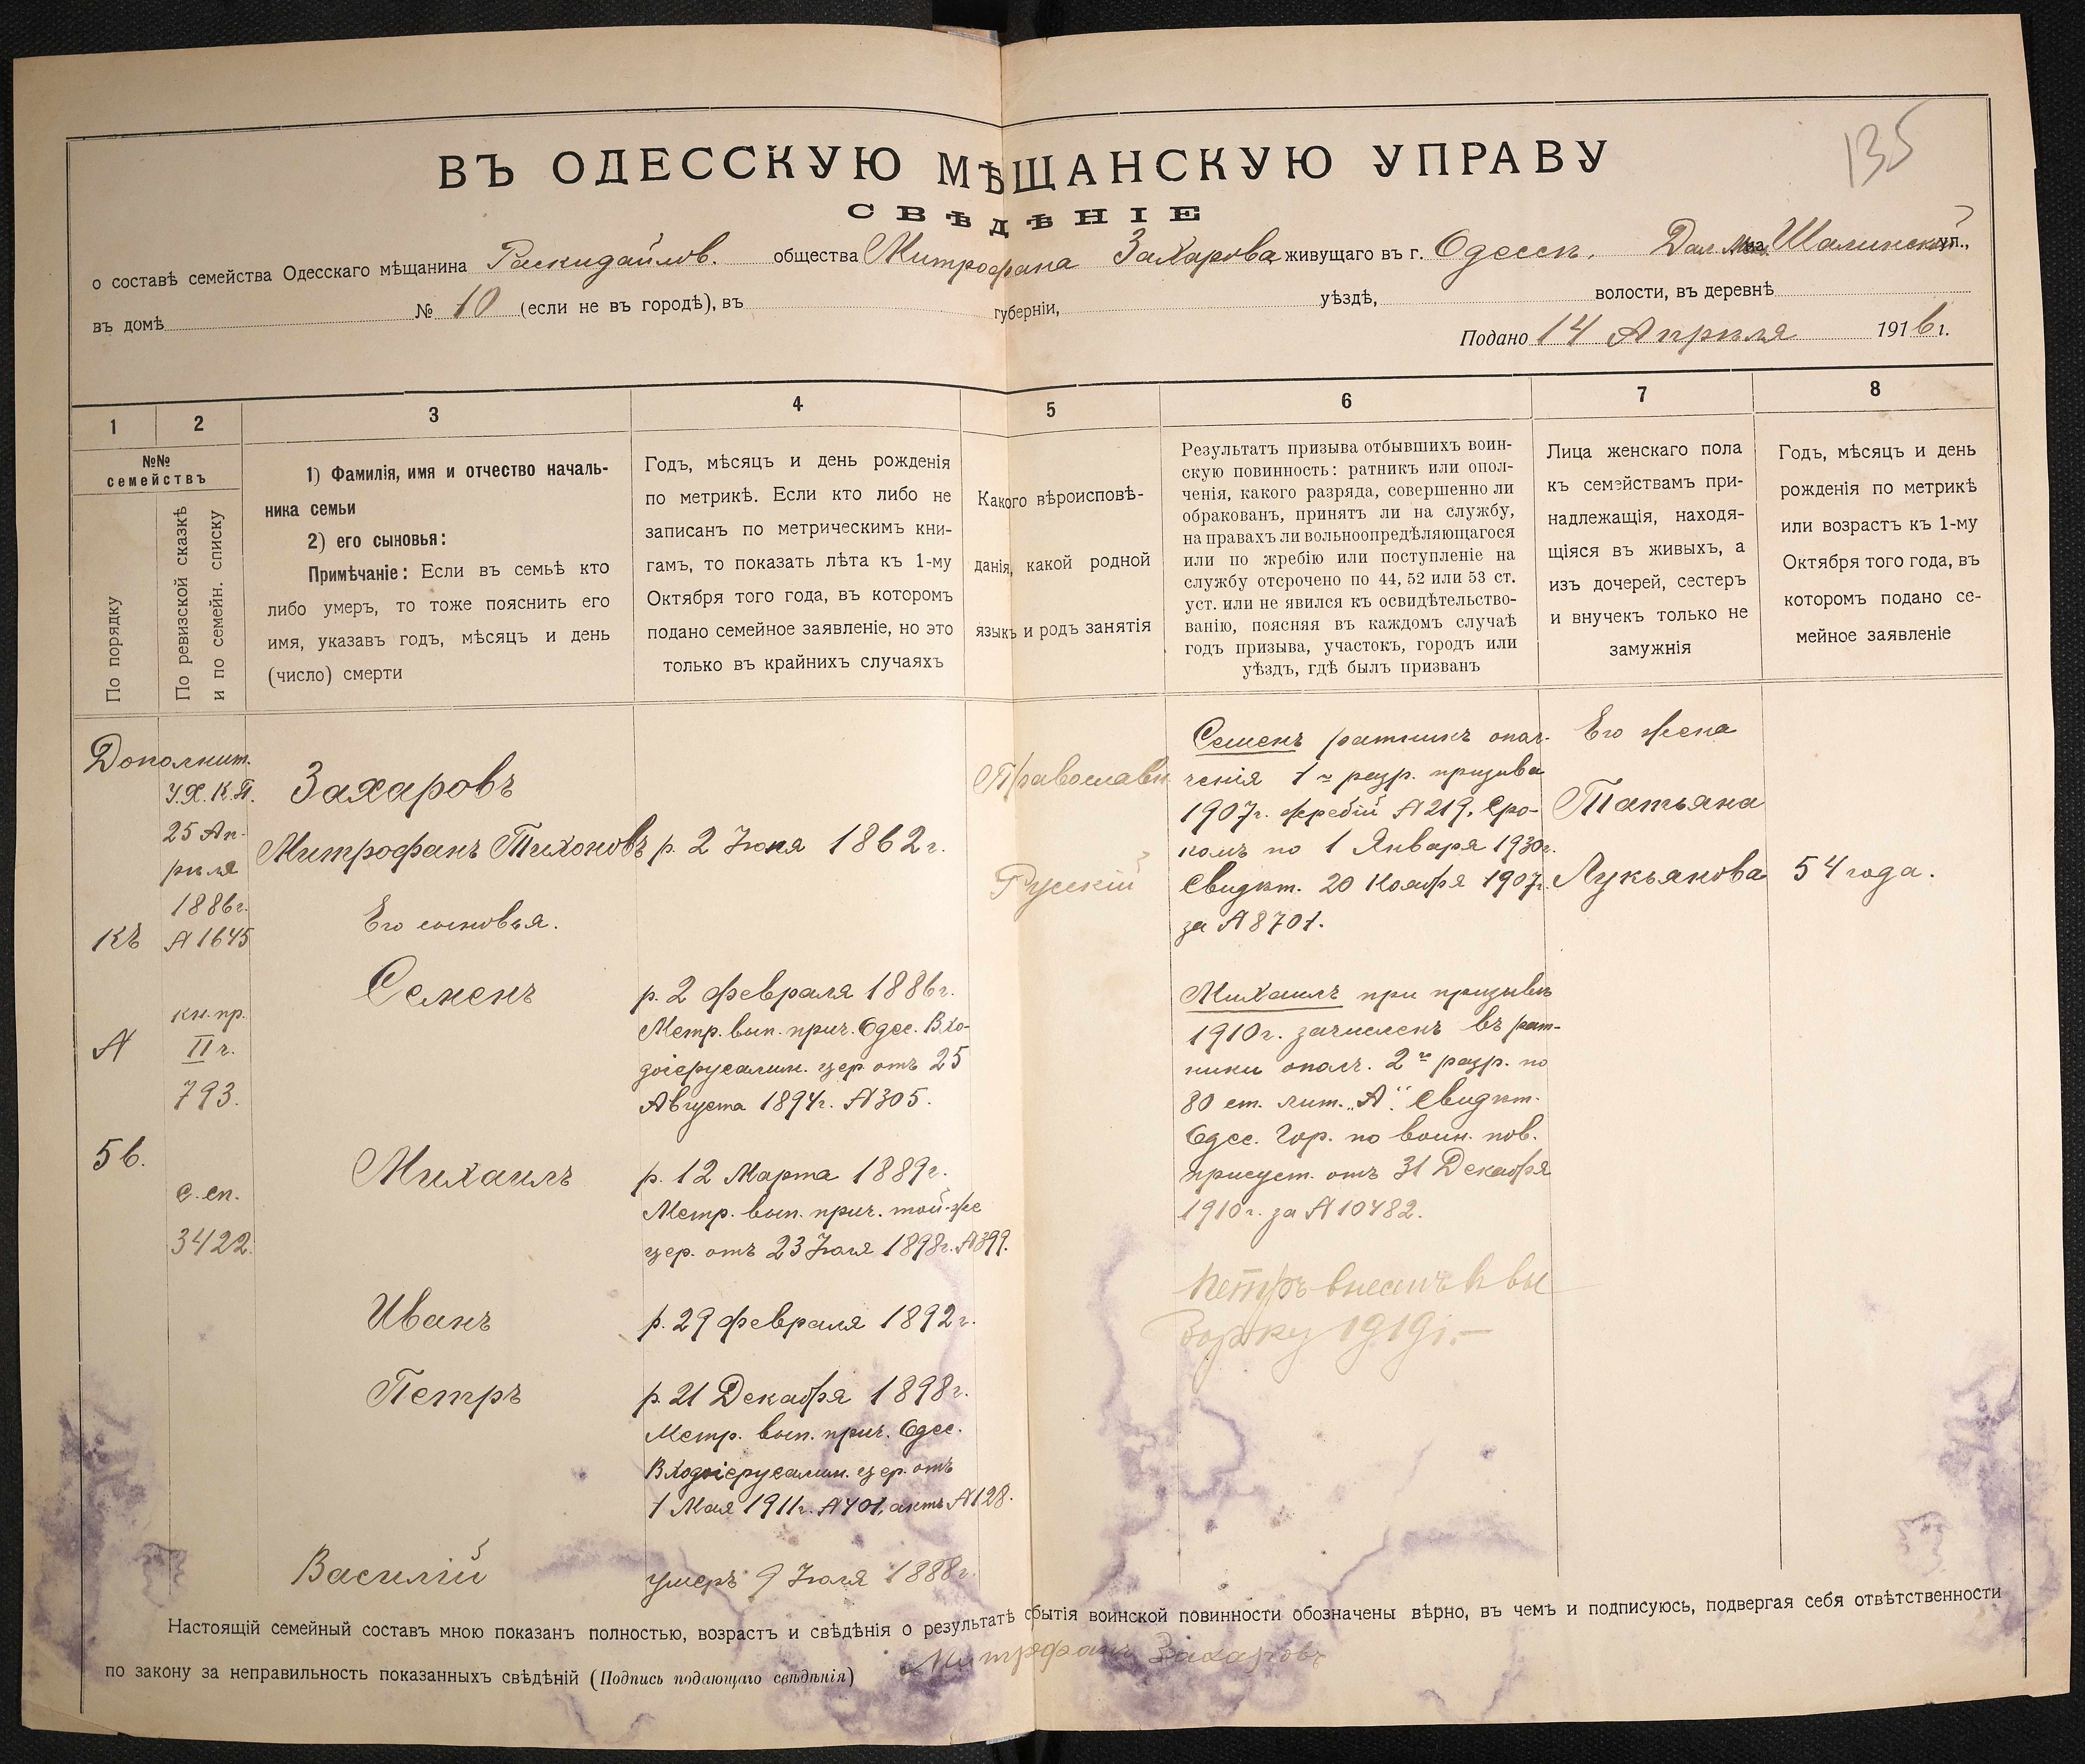 135
ВЪ ОДЕССКУЮ МѢЩАНСКУЮ УПРАВУ
СВѢДѢНІЕ
о составѣ семейства Одесскаго мѣщанина Раскидайлов. общества Митрофана Захарова живущаго въ г. Одессѣ, Дал. ул.,
въ домѣ № 10 (если не въ городѣ), въ губерніи, уѣздѣ, волости, въ деревнѣ
Подано 14 Апрѣля 1916 г.
1
2
3
4
5
6
7
8
№№
семействъ
По порядку
По ревизской сказкѣ
и по семейн. списку
1) Фамилія, имя и отчество началь-
ника семьи
2) его сыновья:
Примѣчаніе: Если въ семьѣ кто
либо умеръ, то тоже пояснить его
имя, указавъ годъ, мѣсяцъ и день
(число) смерти
Годъ, мѣсяцъ и день рожденія
по метрикѣ. Если кто либо не
записанъ по метрическимъ кни-
гамъ, то показать лѣта къ 1-му
Октября того года, въ которомъ
подано семейное заявленіе, но это
только въ крайнихъ случаяхъ
Какого вѣроисповѣ-
данія, какой родной
языкъ и родъ занятія
Результатъ призыва отбывшихъ воин-
скую повинность: ратникъ или опол-
ченія, какого разряда, совершенно ли
обракованъ, принятъ ли на службу,
на правахъ ли вольноопредѣляющагося
или по жребію или поступленіе на
службу отсрочено по 44, 52 или 53 ст.
уст. или не явился къ освидѣтельство-
ванію, поясняя въ каждомъ случаѣ
годъ призыва, участокъ, городъ или
уѣздъ, гдѣ былъ призванъ
Лица женскаго пола
къ семействамъ при-
надлежащія, находя-
щіяся въ живыхъ, а
изъ дочерей, сестеръ
и внучекъ только не
замужнія
Годъ, мѣсяцъ и день
рожденія по метрикѣ
или возрастъ къ 1-му
Октября того года, въ
которомъ подано се-
мейное заявленіе
Дополнит.
къ
№
56.
У.Х.К.П.
25 Ап-
рѣля
1886г.
№ 1645
кн. пр.
II ч.
793.
с. сп.
3422.
Захаровъ
Митрофанъ Тихоновъ
Его сыновья.
Семенъ
Михаилъ
Иванъ
Петръ
Василій
р. 2 Іюня 1862г.
р. 2 февраля 1886г.
Метр. вып. прич. Одес. Вхо-
доіерусалим. цер. отъ 25
Августа 1894г. № 305.
р. 12 Марта 1889г.
Метр. вып. прич. той-же
цер. отъ 23 Іюля 1898г. № 399.
р. 29 февраля 1892г.
р. 21 Декабря 1898г.
Метр. вып. прич. Одес.
Входоіерусалим. цер. отъ
1 Мая 1911г. № 401, актъ № 128.
умеръ 9 Іюля 1888г.
Православн
Русскій
Семенъ ратникъ опол-
ченія 1го разр. призыва
1907г. жребій № 219, сро-
комъ по 1 Января 1930г.
Свидѣт. 20 Ноября 1907г.
за № 8701.
Михаилъ при призывѣ
1910г. зачисленъ въ рат-
ники опол. 2го разр. по
80 ст. лит. „А". Свидѣт.
Одес. Гор. по воин. пов.
присут. отъ 31 Декабря
1910г. за № 10482.
Петръ внесенъ в вы
борку 1919г.
Его жена
Татьяна
Лукьянова
54 года.
Настоящій семейный составъ мною показанъ полностью, возрастъ и свѣдѣнія о результатѣ сбытія воинской повинности обозначены вѣрно, въ чемъ и подписуюсь, подвергая себя отвѣтственности
по закону за неправильность показанныхъ свѣдѣній (Подпись подающаго свѣдѣнія) Митрофанъ Захаровъ